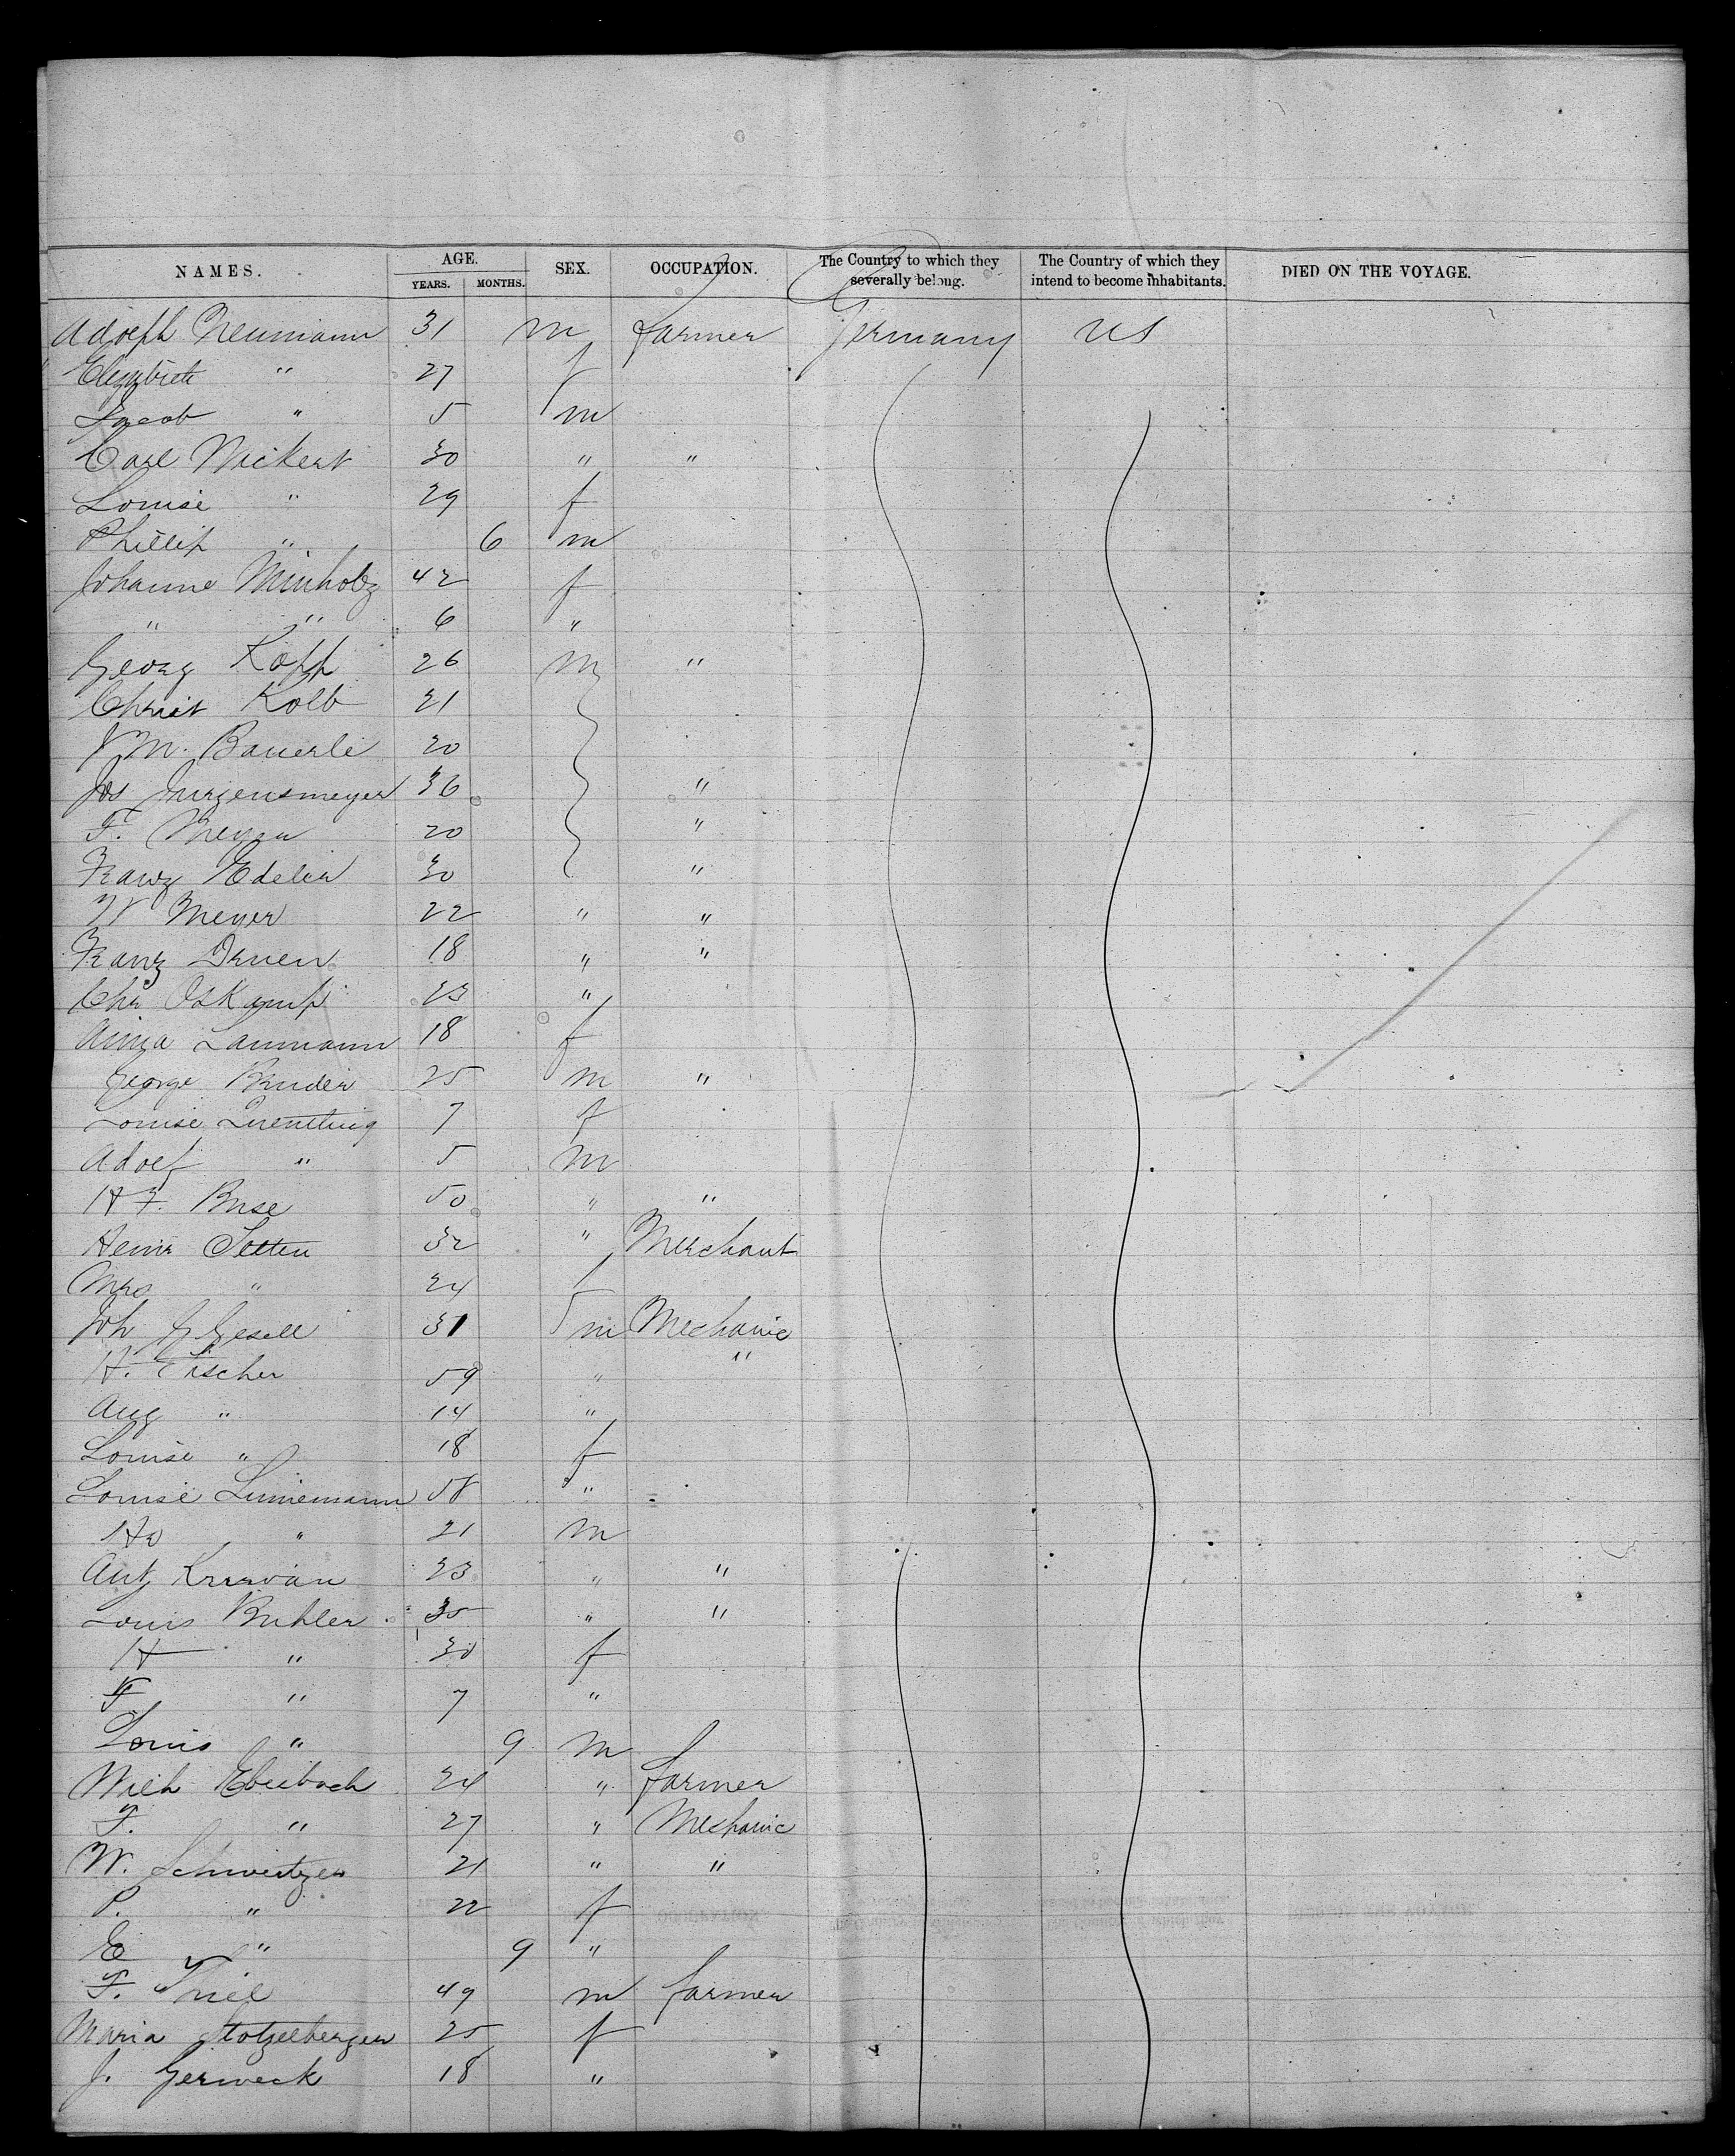 NAMES. AGE. SEX. OCCUPATION. The Country to which they severally belong. The Country of which they intend to become inhabitants. DIED ON THE VOYAGE.
YEARS. MONTHS.
Adolph Neumann 31 m farmer Germany US
Elizabeth " 27 f
Jacob " 5 m
Carl Wickert 30 " "
Louise " 29 f
Phillip " 6 m
Johanne Minholz 42 f
" " 6 "
Georg Kopp 26 m "
Christ Kolb 21
J M. Bauerle 20
Jos Jurgensmeyer 36 "
F. Meyer 20 "
Franz Edeler 30 "
W Meyer 22 " "
Franz Druen 18 " "
Chr Oskamp 23 "
Anna Laumann 18 f
George Binder 25 m "
Louise Quentling 7 f
Adolf " 5 m
H F. Buse 50 " "
Heinr Setten 32 " Merchant
Mrs " 24 f
Joh G Gesell 31 m Mechanic
H. Fischer 59 " "
Aug " 14 "
Louise " 18 f
Louise Linnemann 58 "
Hr " 21 m
Ant Krervan 23 " "
Louis Buhler 35 " "
H " 30 f
F " 7 "
Louis " 9 m
Wilh Ebelbach 24 " farmer
F. " 27 " Mechanic
W. Schweitzer 21 " "
P. " 22 f
E " 9 "
F. Thiel 49 m farmer
Maria Stotzelberger 25 f
J. Gerweck 18 "